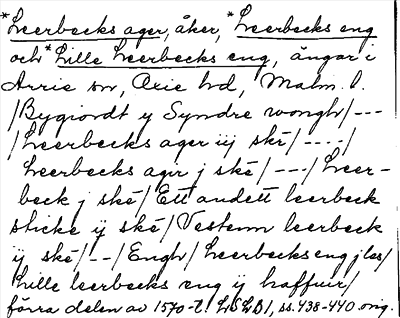 *Leerbecks ager, åker, *Leerbecks eng
och *Lille Leerbecks eng, ängar i
Arrie sn, Oxie hd, Malm. l.
/Bygiordt y Syndre wongh/---
/Leerbecks ager iij skē/----/
Leerbecks ager j skē/---/Leer-
beck j skē/Ett andett leerbeck
sticke ij skē/Vestenn leerbeck
ij skē/--/Engh/Leerbecks eng j les/
Lille leerbecks eng ij haffuir/
förra delen av 1570-t. LSLB1, ss. 438-440 orig.